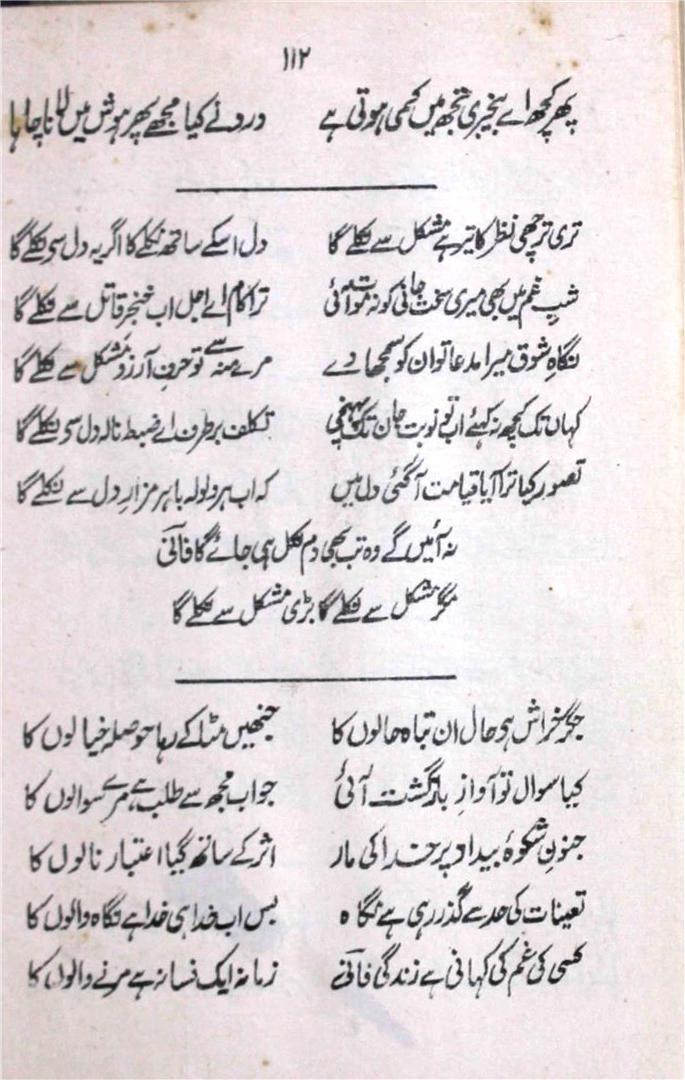 ۱۱۲
پھر کچھ اے بیخبری تجھ میں کمی ہوتی ہے درد نے کیا مجھے پھر ہوش میں لانا چاہا
تری ترچھی نظر کا تیر ہے مشکل سے نکلے گا دل اسکے ساتھ نکلے گا اگر یہ دل سی نکلے گا
شبِ غم میں بھی میری سخت جانی کو نہ موت آئی ترا کام اے اجل اب خنجرِ قاتل سے نکلے گا
نگاہِ شوق میرا مدعا تو ان کو سمجھا دے مرے منہ سے تو حرفِ آرزو مشکل سے نکلے گا
کہاں تک کچھ نہ کہئے اب تو نوبت جان تک پہنچی تکلف برطرف اے ضبط نالہ دل سی نکلے گا
تصور کیا ترا آیا قیامت آگئی دل میں کہ اب ہر ولولہ باہر مزارِ دل سے نکلے گا
نہ آئیں گے وہ تب بھی دم نکل ہی جائے گا فانیؔ
مگر مشکل سے نکلے گا بڑی مشکل سے نکلے گا
جگر خراش ہی حال ان تباہ حالوں کا جنھیں مٹا کے رہا حوصلہ خیالوں کا
کیا سوال تو آوازِ بازگشت آئی جواب مجھ سے طلب ہے مرے سوالوں کا
جنونِ شکوۂ بیداد پر خدا کی مار اثر کے ساتھ گیا اعتبار نالوں کا
تعینات کی حد سے گذر رہی ہے نگاہ بس اب خدا ہی خدا ہے نگاہ والوں کا
کسی کی غم کی کہانی ہے زندگی فانیؔ زمانہ ایک فسانہ ہے مرنے والوں کا